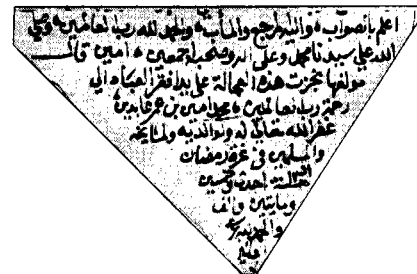 اعلم بالصواب واليه المرجع والمآب والحمد لله رب العالمين وصلى
الله على سيدنا محمد وعلى اله وصحبه اجمعين امين قال
مولفها نجزت هذه العجالة على يد افقر العباد الى
رحمة رب العالمين محمد امين بن عمر عابدين
غفر الله تعالى له ولوالديه ولمشايخه
والمسلمين في غرة رمضان
سنة احدى وخمسين
ومايتين والف